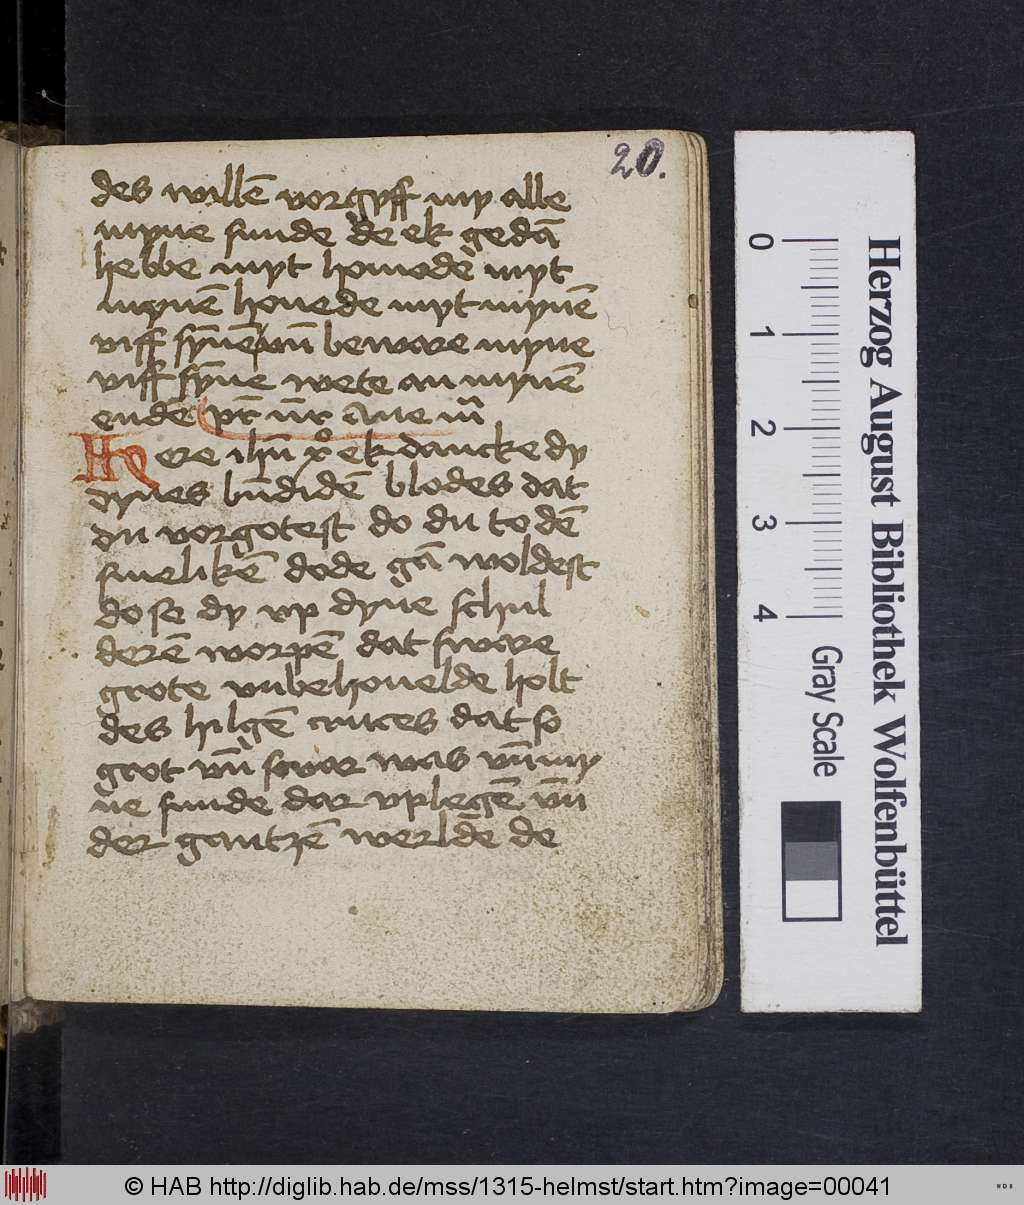 20.
des willē vorgyff my alle
myne sunde de ek gedā
hebbe myt homode myt
mynē houede myt mynē
viff sȳnē vn̄ beware myne
viff sȳne wete an mynē
ende pr̄ nr̄ aue m̄
Here ihū xp̄o ek dancke dy
dynes blodes dat
du vorgotest do du to dē
smelikē dode gā woldest
do se dy vp dyne schul
derē worpē dat sware
grote vnbehouelde holt
des hilgē cruces dat so
grot vn̄ swar was vn̄ my
ne sunde dar vp legē vn̄
der gantzē werlde de
Herzog August Bibliothek Wolfenbüttel
0 1 2 3 4
Gray Scale
© HAB http://diglib.hab.de/mss/1315-helmst/start.htm?image=00041